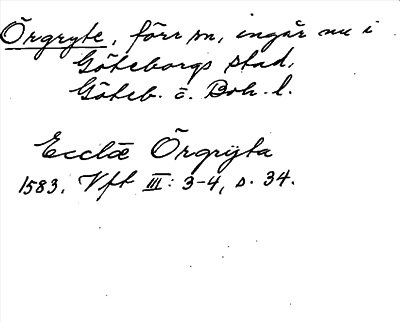 Örgryte, förr sn, ingår nu i
Göteborgs stad,
Göteb. o. Boh. l.
Ecclæ Örgryta
1583. Vft III: 3-4, s. 34.